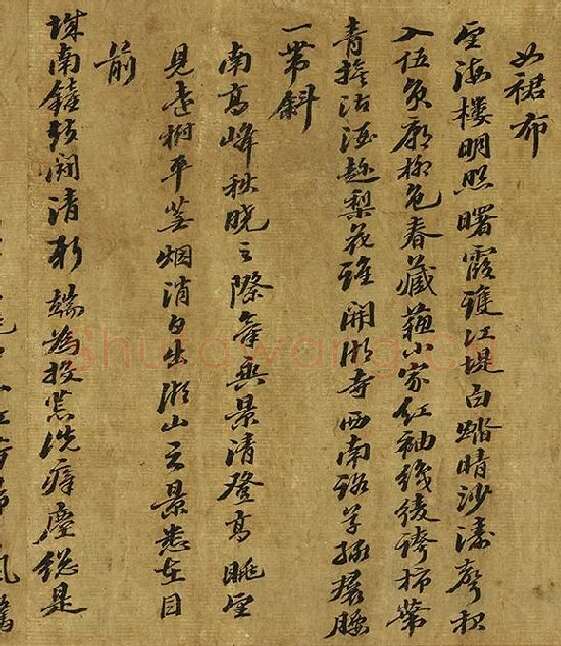 如裙布
望海樓明照曙霞護江堤白踏晴沙濤聲夜
入伍員廟柳色春藏蘇小家紅袖織綾誇柿帶
青沽酒趁梨花誰開湖寺西南路草綠裙腰
一帶斜
南高峰秋曉之際氣與景清登高眺望
見遠樹平蕪烟消日出湖山之景悉在目
前
南開清新端為投荒洗瘴塵總是